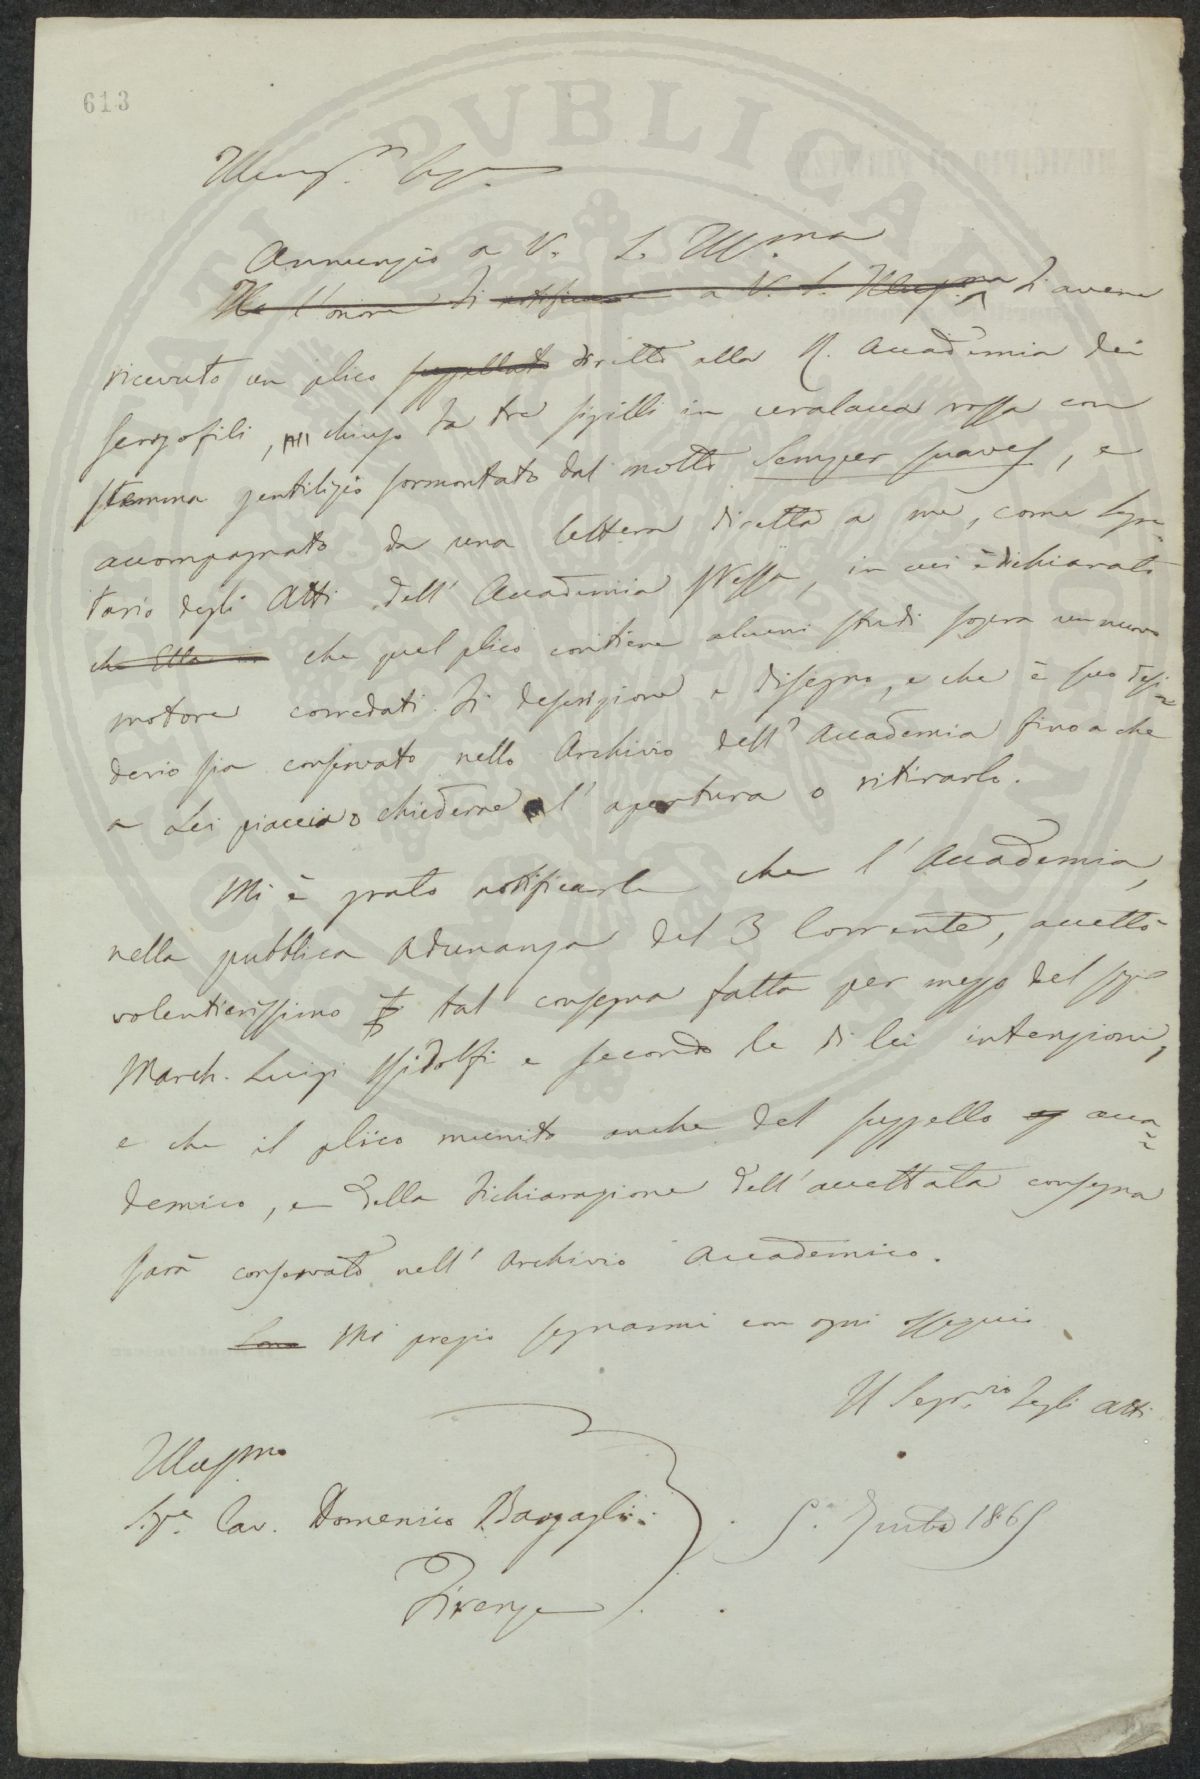 613
Illus.mo Sig.re
Annunzio a V. S. Ill.ma
Ho l'onore di notificare a V. S. Illus.ma di avere
ricevuto un plico suggellato diretto alla R. Accademia dei
Georgofili, chiuso da tre sigilli in ceralacca rossa con
stemma gentilizio sormontato dal motto Semper suaves, e
accompagnato da una lettera diretta a me, come Segre-
tario degli Atti dell'Accademia stessa, in cui è dichiarato
che Ella che quel plico contiene alcuni studi sopra un nuovo
motore corredati di descrizione e disegno, e che è suo desi=
derio sia conservato nello Archivio dell'Accademia fino a che
a Lei piaccia o chiederne l'apertura o ritirarlo.
Mi è grato notificarle che l'Accademia,
nella pubblica adunanza del 3 Corrente, accettò
volentierissimo tal consegna fatta per mezzo del sig.re
March. Luigi Ridolfi e secondo le di lei intenzioni,
e che il plico munito anche del suggello acca=
demico, e della dichiarazione dell'accettata consegna
sarà conservato nell'Archivio Accademico.
Sono Mi pregio segnarmi con ogni ossequio
Il Segr.rio degli Atti
Illusmo
Sig.re Cav. Domenico Bargagli
5. Giugno 1865
Firenze